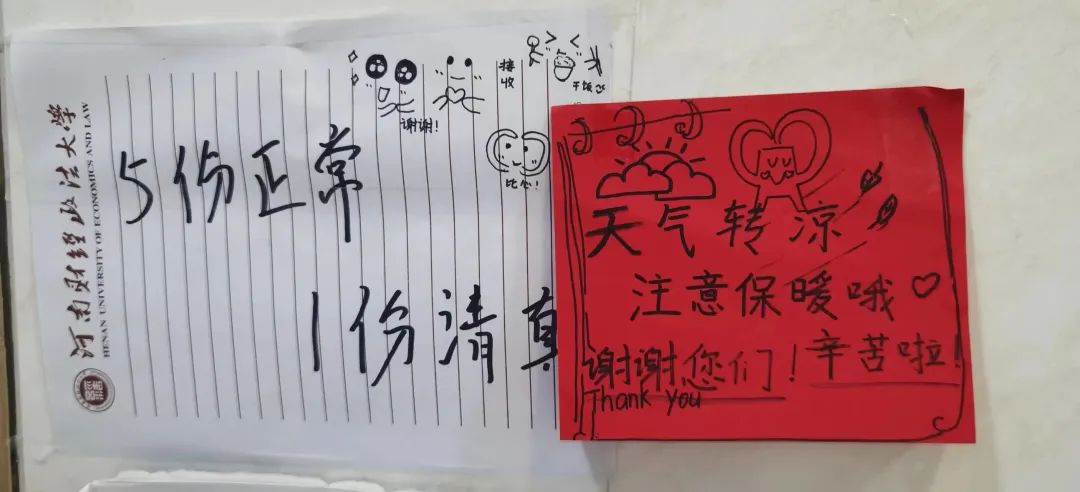 河南财经政法大学
HENAN UNIVERSITY OF ECONOMICS AND LAW
5份正常
1份清真
谢谢!
接收
干饭
比心!
天气转凉
注意保暖哦
谢谢您们!辛苦啦!
Thank you